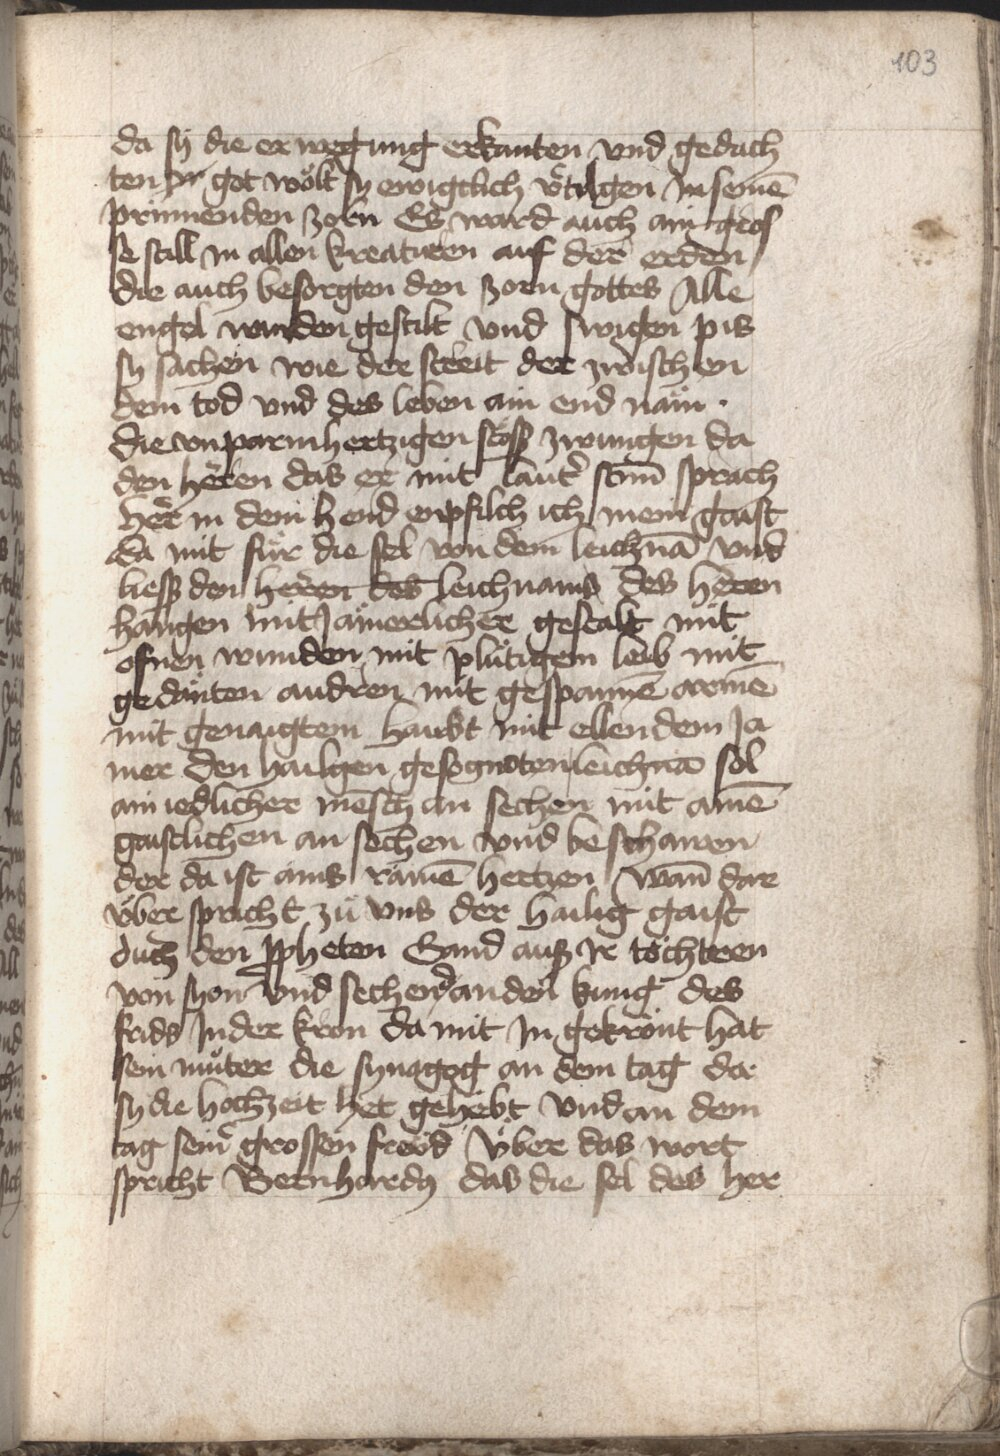 103
da sÿ die erwegung erkanten vnd gedach
ten Ir got wölt sÿ ewigclich v̓tilgen In seinē
prinnenden zorn Es ward auch ain gros
se still in allen kreaturen auf der erden
die auch besorgten den zorn gottes Alle
engel wurden gestilt vnd swigen pis
sy sachen wie der streit der zwischen
dem tod vnd des leben ain end näm .
die vnparmhertzigen stöss zwungen da
den heren das er mit laut̓ stim̄ sprach
her in dein hend enpfilch ich mein gaist
da mit für die sel von dem leichnā vnd
liess den heren des leichnams des heren
hangen mit Jämerlicher gestalt mit
ofnen wunden mit plütigem leib mit
gedänten audren mit gespannē armē
mit genaigtem haubt mit ellendem Ja
mer den hailgen gesegnoten leichnā sol
ain iedlicher mēsch an sechen mit ainē
gaistlichen an sechen vnd beschawen
der da ist ains rainē hertzen wan̄ dar
vber spricht zü vns der hailig gaist
duch den ꝓpheten Gand auss Ir töchteren
von syon vnd sechend an den kung des
frids In der kron da mit In gekrönt hat
sein müter die synagog an dem tag da
sy die hochzeit het gehebt vnd an dem
tag sein̓ grossen fröd Vber das wort
spricht Bernhardꝰ das die sel des her